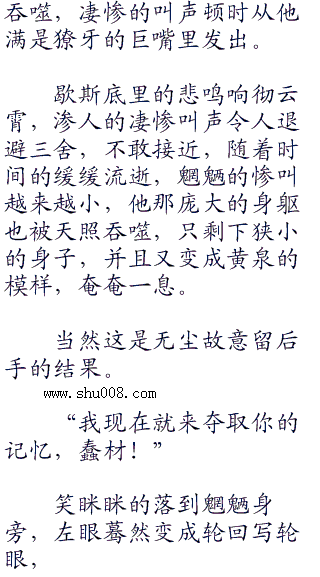 吞噬，凄惨的叫声顿时从他
满是獠牙的巨嘴里发出。
歇斯底里的悲鸣响彻云
霄，渗人的凄惨叫声令人退
避三舍，不敢接近，随着时
间的缓缓流逝，魍魉的惨叫
越来越小，他那庞大的身躯
也被天照吞噬，只剩下狭小
的身子，并且又变成黄泉的
模样，奄奄一息。
当然这是无尘故意留后
手的结果。
www.shu008.com
“我现在就来夺取你的
记忆，蠢材！”
笑眯眯的落到魍魉身
旁，左眼蓦然变成轮回写轮
眼，